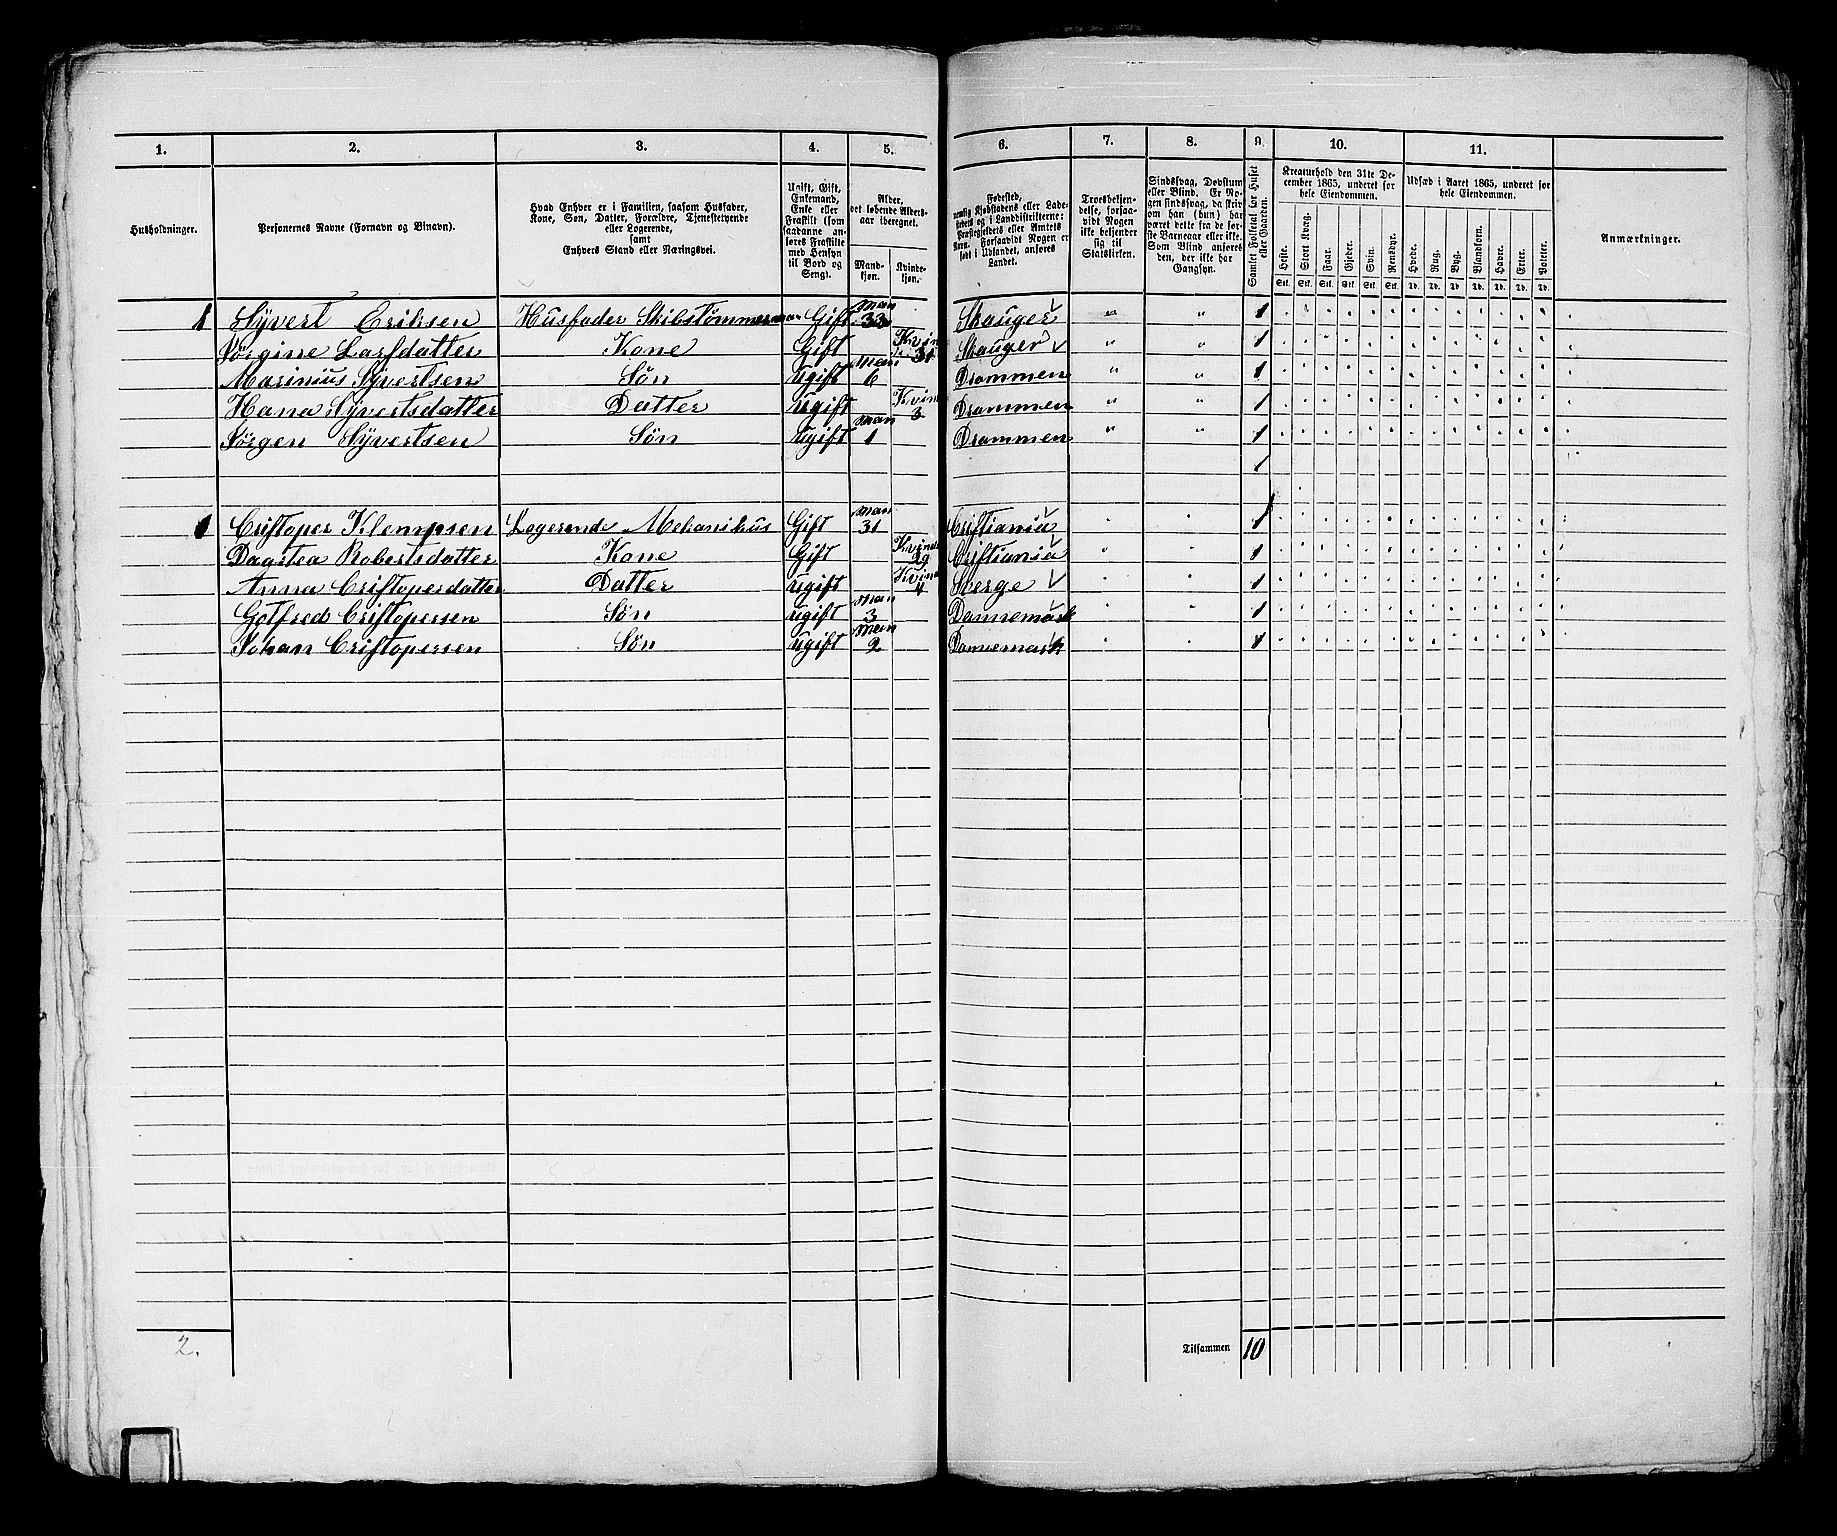 1. 2. 3. 4. 5. 6. 7. 8. 9. 10. 11.
Husholdninger.
Personernes Navne (Fornavn og Binavn).
Hvad Enhver er i Familien, saasom Husfader,
Kone, Søn, Datter, Forældre, Tjenestetyende
eller Logerende,
samt
Enhvers Stand eller Næringsvei.
Ugift, Gift,
Enkemand,
Enke eller
Fraskilt (som
saadanne an-
føres Fraskilte
med Hensyn
til Bord og
Seng).
Alder,
det løbende Alders-
aar iberegnet.
Mand-
kjøn.
Kvinde-
kjøn.
Fødested,
nemlig Kjøbstadens eller Lade-
stedets og i Landdistrikterne:
Præstegjeldets eller Amtets
Navn. Forsaavidt Nogen er
født i Udlandet, anføres
Landet.
Troesbekjen-
delse, forsaa-
vidt Nogen
ikke bekjender
sig til
Statskirken.
Sindssvag, Døvstum
eller Blind. Er No-
gen sindssvag, da skriv
om han (hun) har
været dette fra de før-
ste Barneaar eller ikke.
Som Blind anføres
den, der ikke har
Gangsyn.
Samlet Folketal for Huset
eller Gaarden.
Kreaturhold den 31te De-
cember 1865, underet for
hele Eiendommen.
Heste. Stort Kvæg. Faar. Gjeder. Svin. Rensdyr.
Stk. Stk. Stk. Stk. Stk. Stk.
Udsæd i Aaret 1865, underet for
hele Eiendommen.
Hvede. Rug. Byg. Blandkorn. Havre. Erter. Poteter.
Td. Td. Td. Td. Td. Td. Td.
Anmærkninger.
1 Syvert Eriksen Husfader Skibstømmerman Gift Man 33 Skauger " " 1
Jørgine Larsdatter Kone Gift Kvin 31 Skauger " " 1
Marinius Syvertsen Søn ugift Man 6 Drammen " " 1
Hana Syvertsdatter Datter ugift Kvin 3 Drammen " " 1
Jørgen Syvertsen Søn ugift Man 1 Drammen " " 1
1
1 Cristoper Klempsen Logerende Mekanikus Gift Man 31 Cristiania 1
Dagstea Robertsdatter Kone Gift Kvin 29 Cristiania 1
Anna Cristopersdatter Datter ugift Kvin 4 Sverge 1
Gotfred Cristopersen Søn ugift Man 3 Dannemark 1
Johan Cristopersen Søn ugift Man 2 Dannemark 1
2. Tilsammen 10